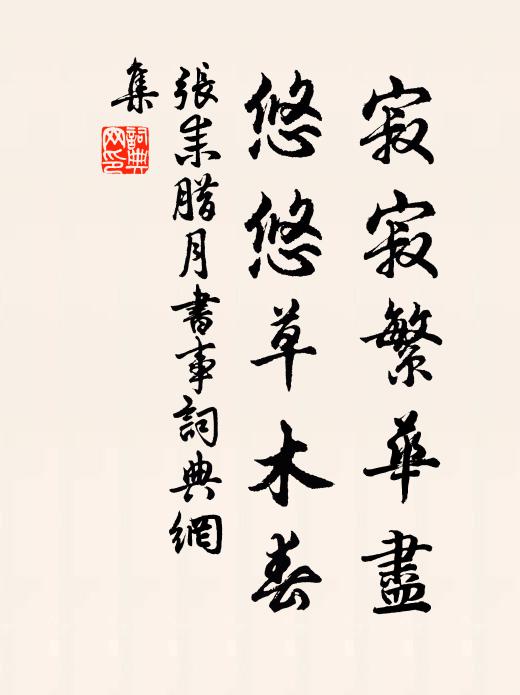 寂寂繁華盡
悠悠草木春
張耒腊月書事詞典網
集
詞典
网印